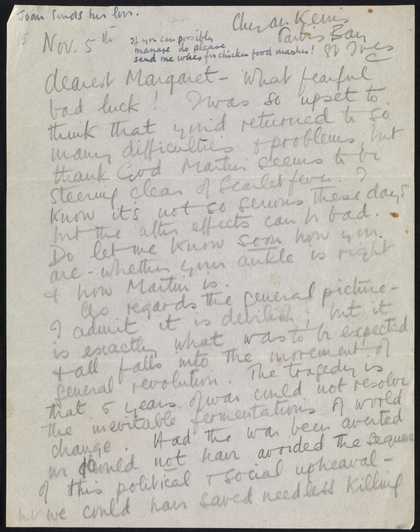 Joan sends her love.
Chy-an-Kerris
Nov. 5th
Carbis Bay
St Ives
If you can possibly
manage do please
send me for chicken food mashes!
dearest Margaret – What fearful
bad luck! I was so upset to
think that you'd returned to so
many difficulties & problems, but
thank God Martin seems to be
steering clear of Scarlet fever. I
know it's not so serious these days
but the after effects can be bad.
Do let me know soon how you
are – whether your ankle is right
& how Martin is.
As regards the general picture –
I admit it is devilish; but it
is exactly what was to be expected
& all falls into the movement of
general revolution. The tragedy is
that 5 years of war could not resolve
the inevitable fermentations of world
change. Had the war been averted
we could not have avoided the sequence
of this political & social upheaval –
but we could have saved needless killing